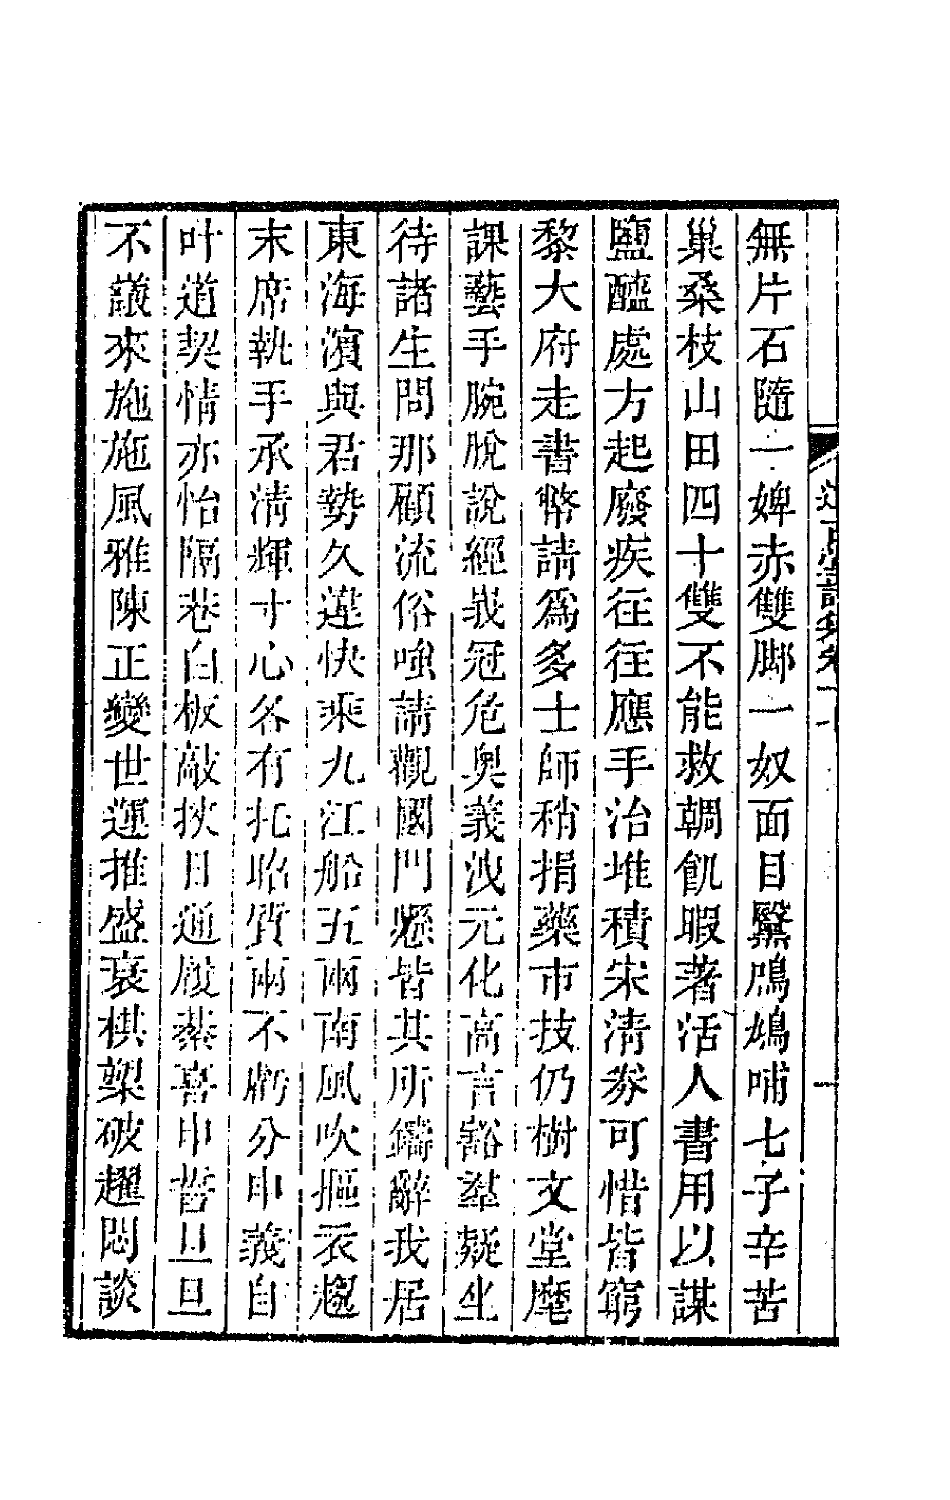 無片石隨一婢赤雙脚一奴面目黳鳲鳩哺七子辛苦
巢桑枝山田四十雙不能救朝飢暇著活人書用以謀
鹽醯處方起廢疾往往應手治堆積宋清券可惜皆窮
黎大府走書幣請為多士師稍捐藥市技仍樹文堂麾
課藝手腕脫說經峩冠危奥義洩元化高言豁羣疑坐
待諸生問那顧流俗嗤請觀國門懸皆其所鑄辭我居
東海濱與君勢久違快乘九江船五兩南風吹摳衣趨
末席執手承清輝寸心各有托昭質兩不虧分申義自
叶道契情亦怡隔巷白板敲挾日通履綦喜申晢旦旦
不議來施施風雅陳正變世運推盛衰棋槊破趯悶談